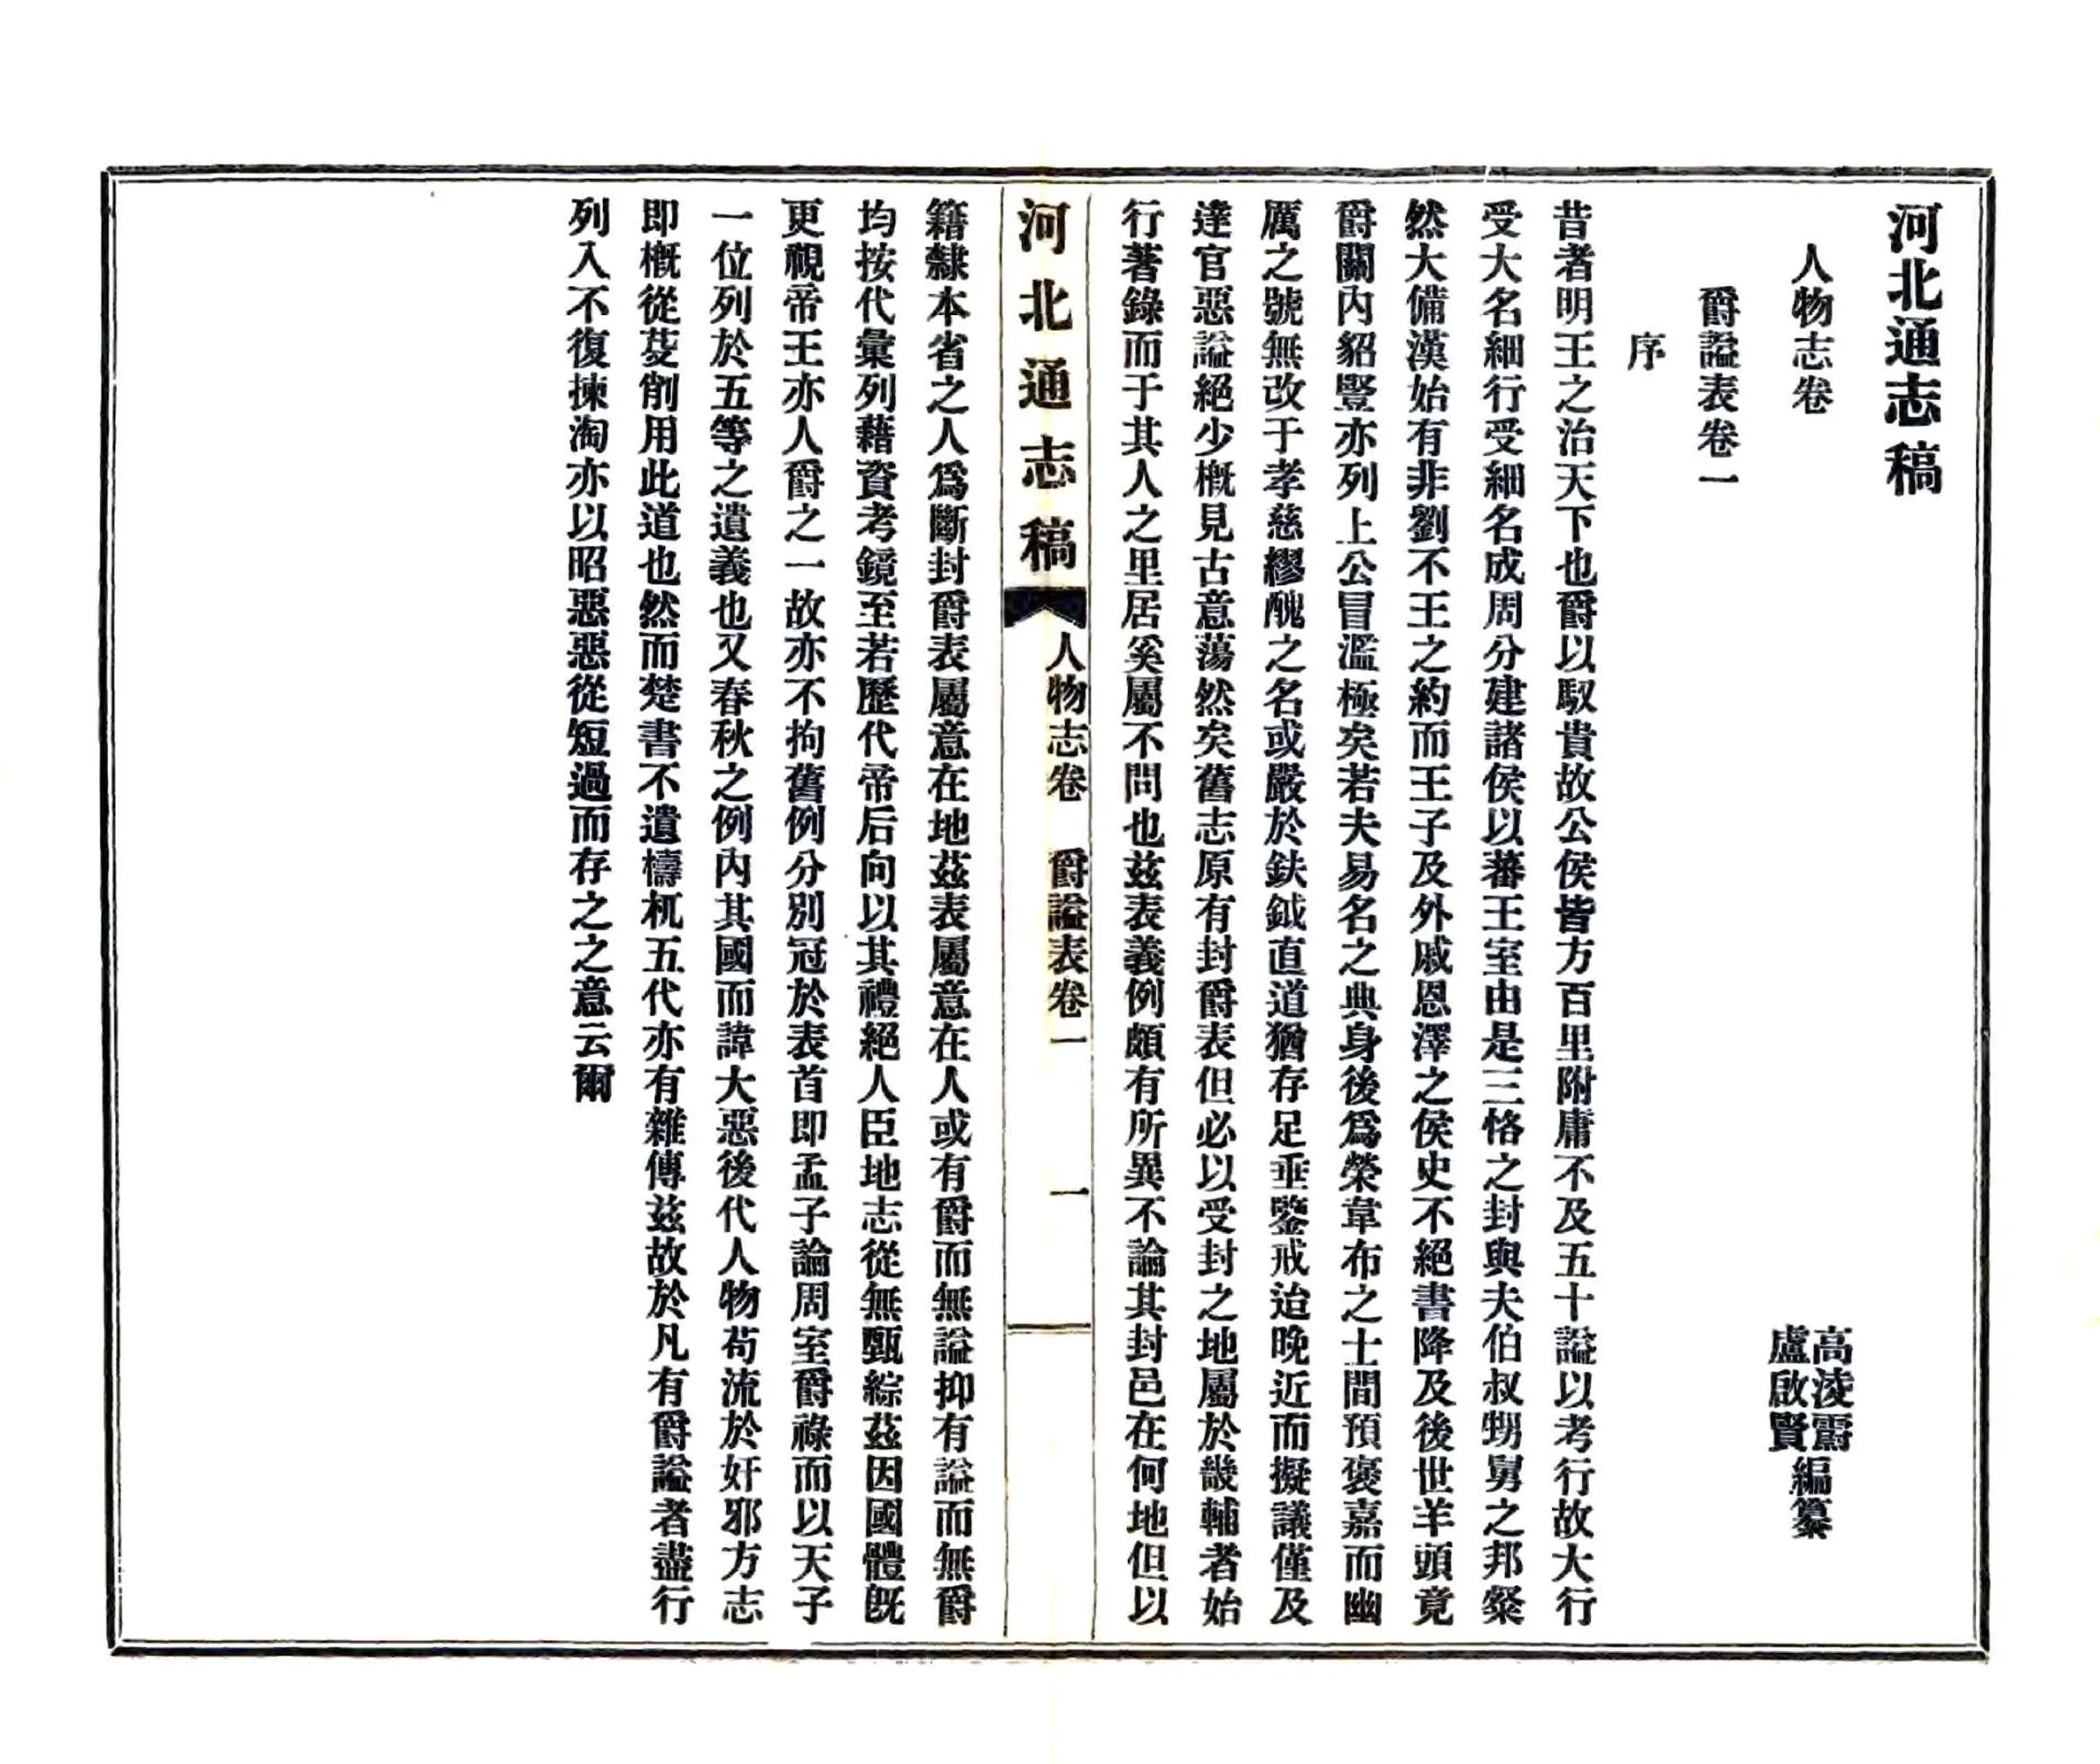 河北通志稿
人物志卷
高淩霨
盧啟賢
編纂
爵謚表卷一
序
昔者明王之治天下也爵以馭貴故公侯皆方百里附庸不及五十謚以考行故大行
受大名細行受細名成周分建諸侯以蕃王室由是三恪之封與夫伯叔甥舅之邦粲
然大備漢始有非劉不王之約而王子及外戚恩澤之侯史不絕書降及後世羊頭竟
爵關內貂豎亦列上公冒濫極矣若夫易名之典身後爲榮韋布之士間預褒嘉而幽
厲之號無改于孝慈繆醜之名或嚴於鈇鉞直道猶存足垂鑒戒迨晚近而擬議僅及
達官惡謚絕少概見古意蕩然矣舊志原有封爵表但必以受封之地屬於畿輔者始
行著錄而于其人之里居奚屬不問也茲表義例頗有所異不論其封邑在何地但以
河北通志稿 人物志卷 爵謚表卷一 一
籍隸本省之人爲斷封爵表屬意在地茲表屬意在人或有爵而無謚抑有謚而無爵
均按代彙列藉資考鏡至若歷代帝后向以其禮絕人臣地志從無甄綜茲因國體旣
更視帝王亦人爵之一故亦不拘舊例分別冠於表首即孟子論周室爵祿而以天子
一位列於五等之遺義也又春秋之例內其國而諱大惡後代人物苟流於奸邪方志
即概從芟削用此道也然而楚書不遺檮杌五代亦有雜傳茲故於凡有爵謚者盡行
列入不復揀淘亦以昭惡惡從短過而存之之意云爾